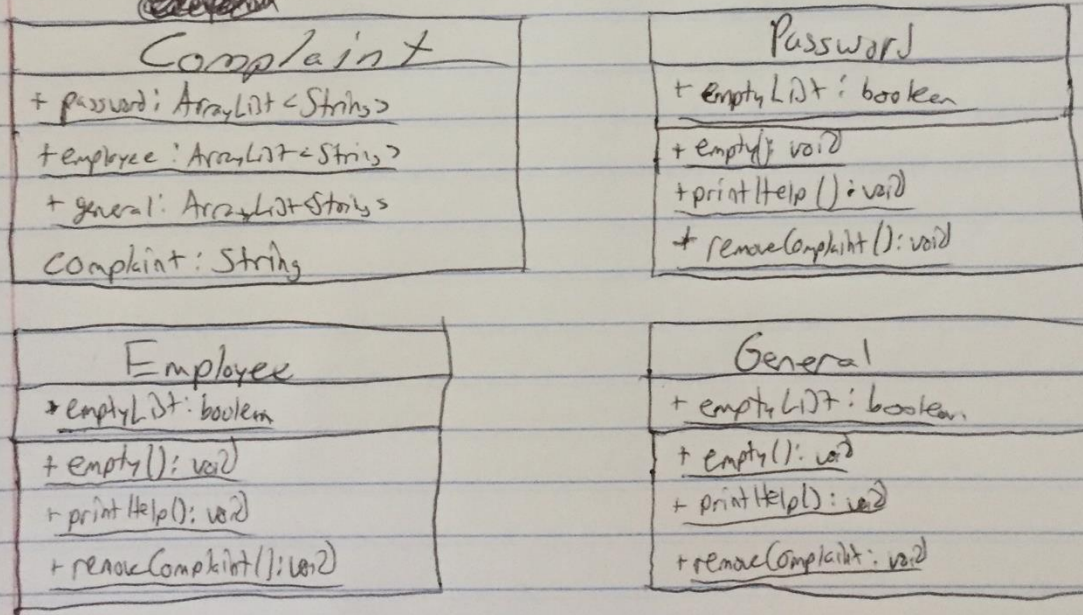 Complaint
+ password: ArrayList<String>
+ employee: ArrayList<String>
+ general: ArrayList<String>
complaint: String
Password
+ emptyList: boolean
+ empty(): void
+ printHelp(): void
+ removeComplaint(): void
Employee
+ emptyList: boolean
+ empty(): void
+ printHelp(): void
+ removeComplaint(): void
General
+ emptyList: boolean
+ empty(): void
+ printHelp(): void
+ removeComplaint: void